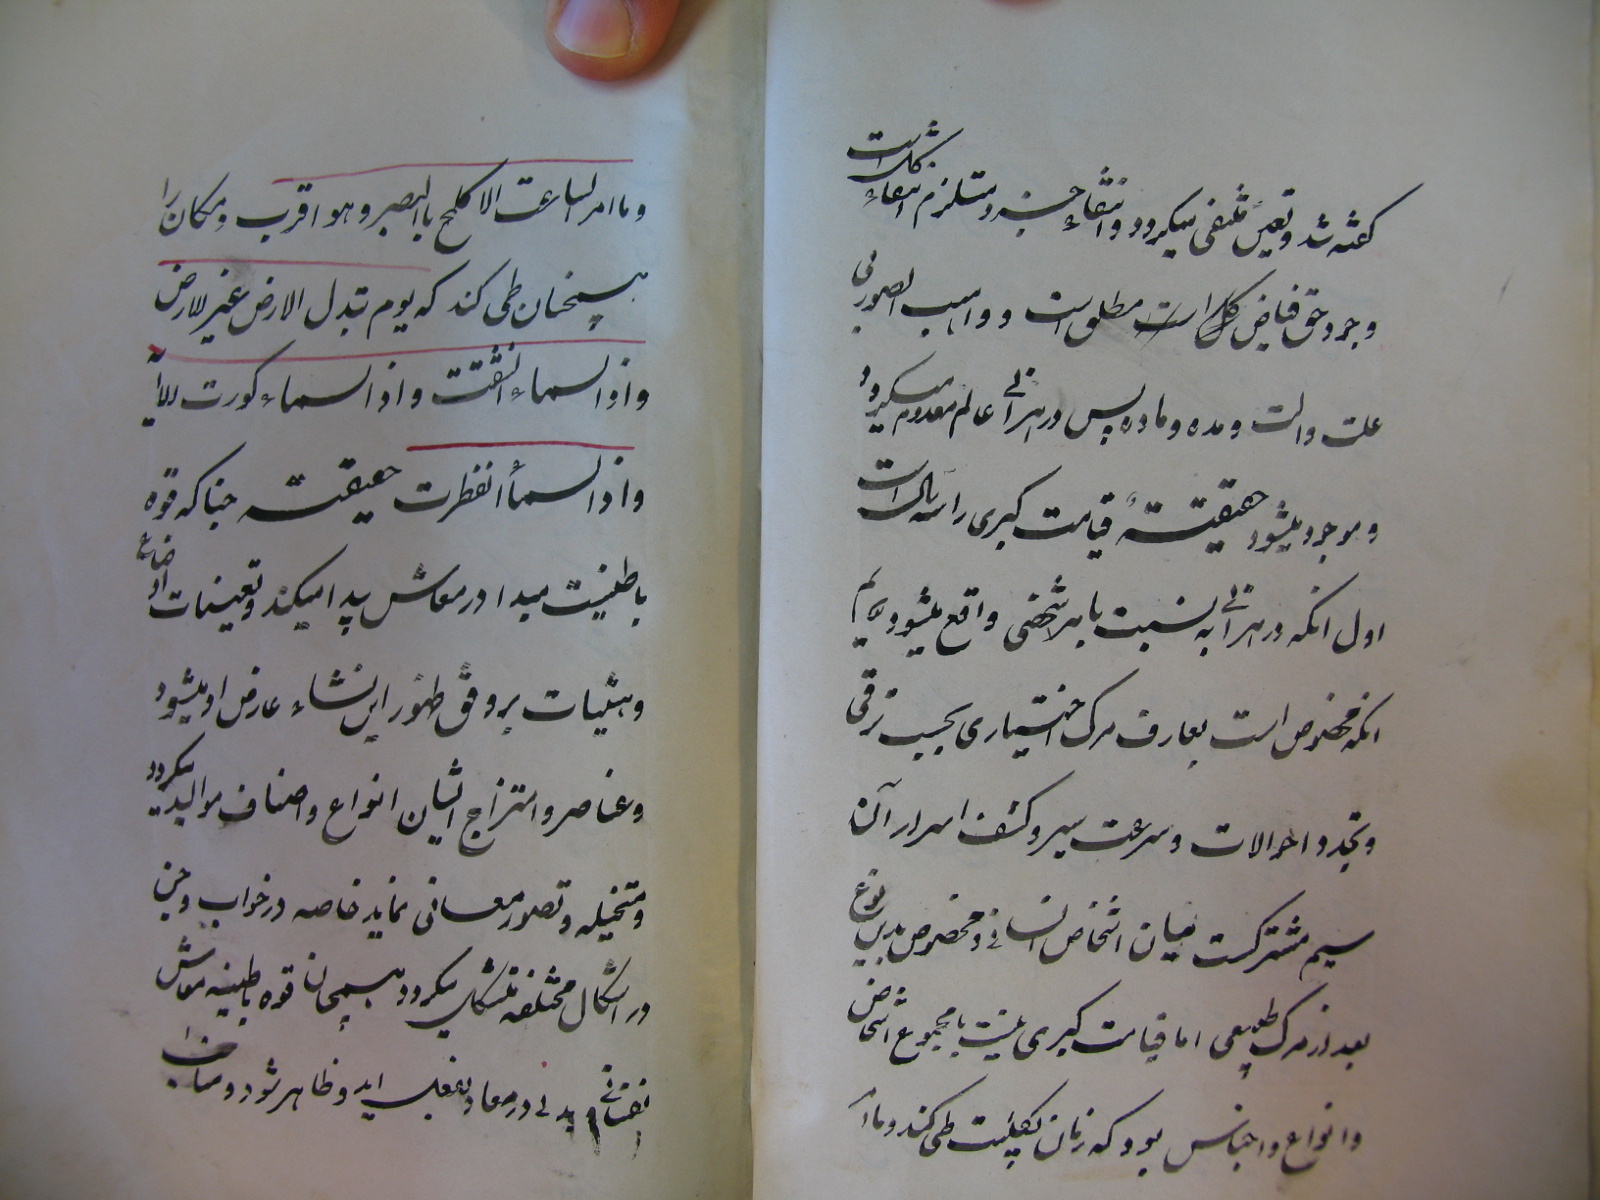 کفته شد و تعین منتفی میکردد و انتفاء جزء و مستلزم انتفاء کل است
وجود حق فیاض کل است مطلق است و واهب الصور بی
علت والت و مده و ماده پس در هر انی عالم معدوم میکردد
و موجود میشود حقیقتهٔ قیامت کبری را سه مثال است
اول انکه در هر انی به نسبت با هر شخصی واقع میشود دویم
انکه مخصوص است بعارف مرک اختیاری بحسب ترقی
و تجدد احوالات و سرعت سیر و کشف اسرار آن
سیم مشترکست میان اشخاص انسانی و مخصوص بدین نوع
بعد از مرک طبیعی اما قیامت کبری عینیت با مجموع اشخاص
و انواع و اجناس بود که زمان بکلیت طی کند و ما امر
و ما امر الساعت الا کلمح باالبصر و هو اقرب و مکان را
همچنان طی کند که یوم تبدل الارض غیر لارض
و اذا السماء انشقت و اذا السماء کورت
و اذا السمأ انفطرت حقیقته چنا که قوه
باطنیت مبدا در معاش پیدا میکند و تعینات اوضاع
و هیئیات بر وفق ظهور این نشاء عارض او میشود
و عناصر و امتزاج ایشان انواع و اصناف موالید میکردد
و متخیله و تصور معانی نماید خاصه در خواب و حین
در اشکال مختلفه متشکل میکردد همچنان قوه باطینه معاش
نفسانی بدنی در معاد بفعل اید و ظاهر شود و مناسب